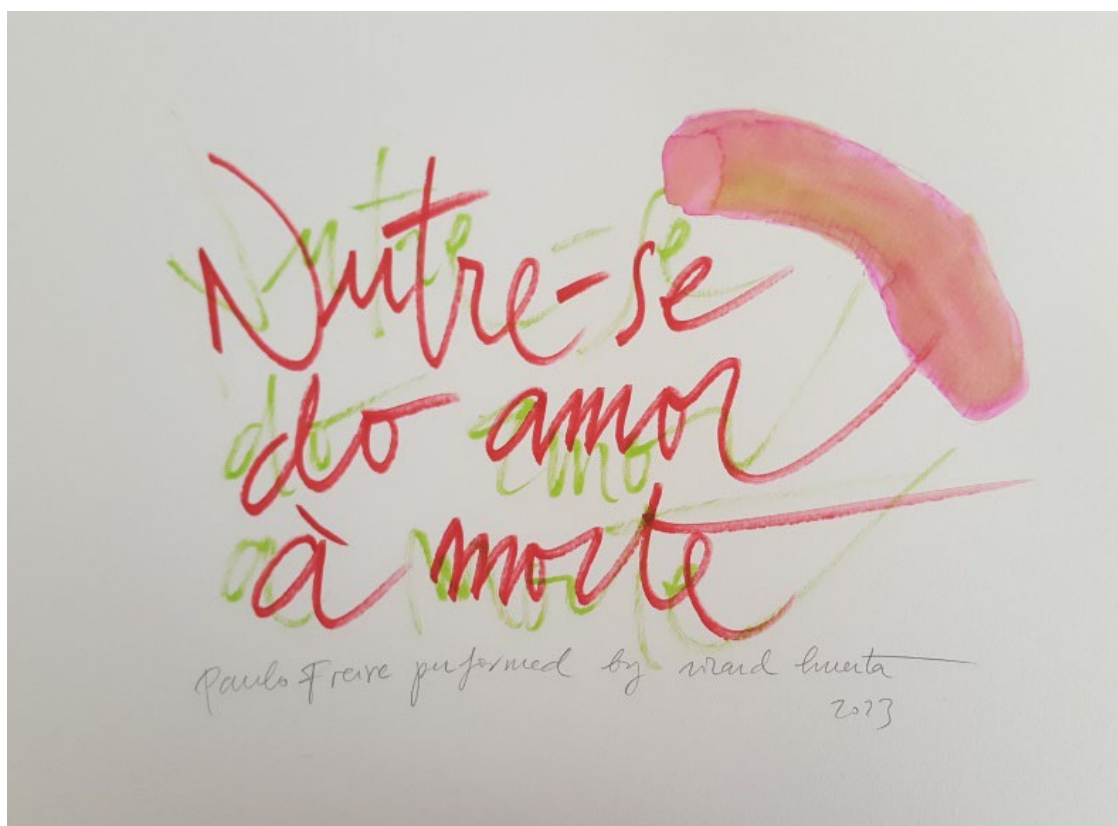 Nutre-se
do amor
à morte
Paulo Freire performed by ricard huerta
2023